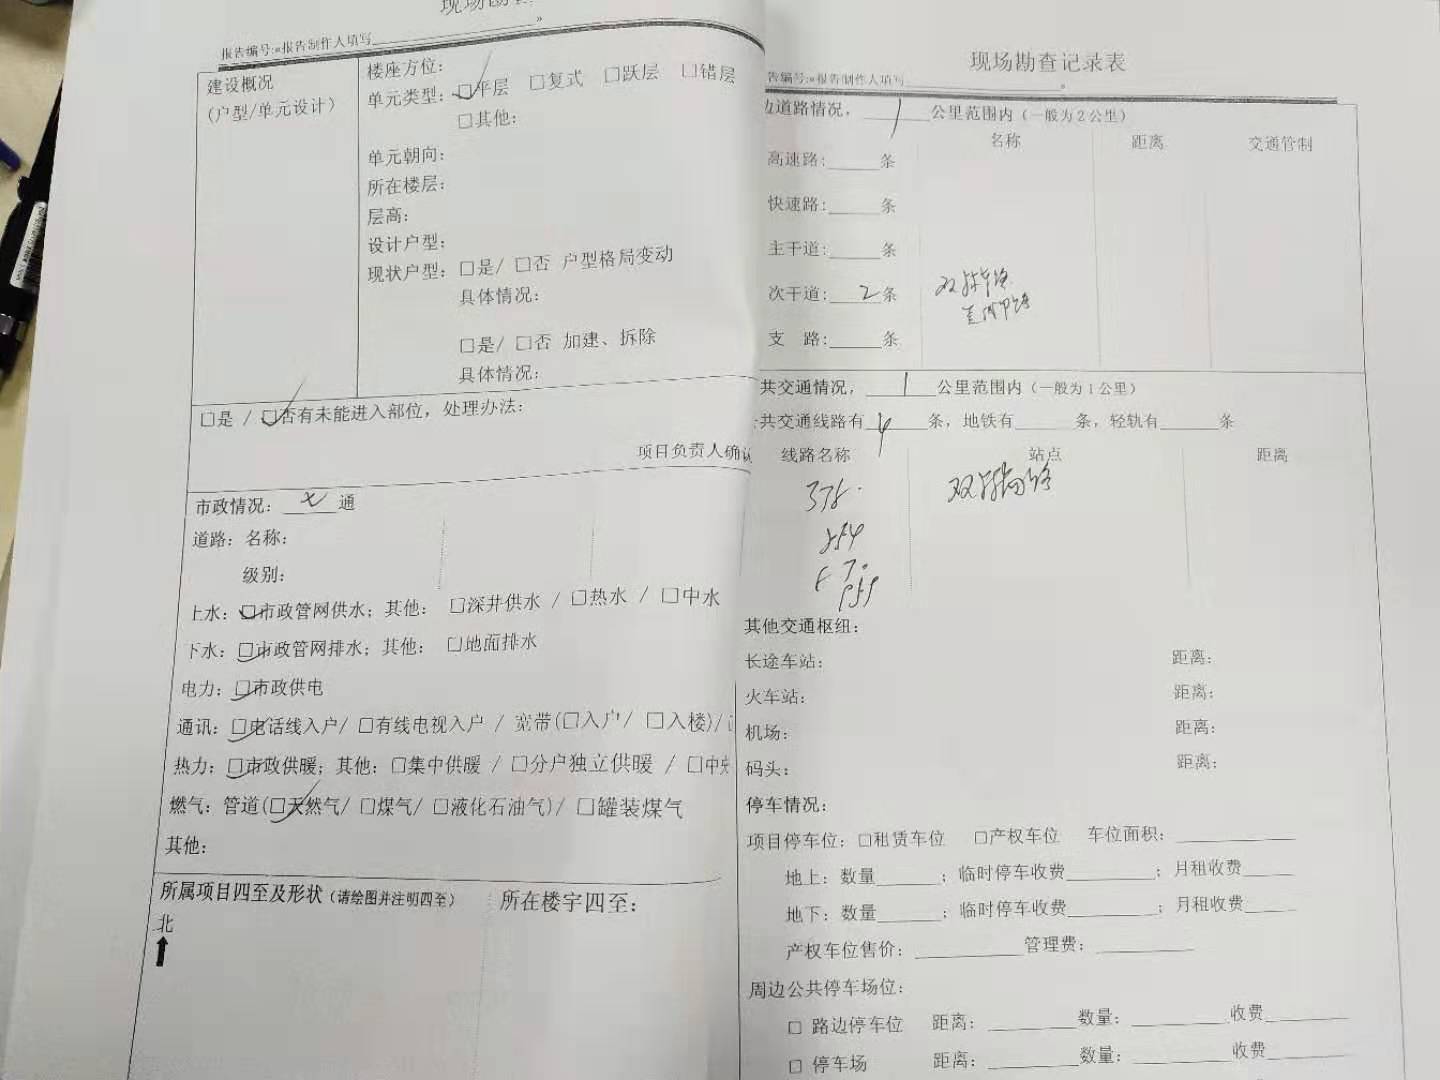 现场勘查
报告编号:«报告制作人填写 »
建设概况
(户型/单元设计)
楼座方位:
单元类型: □平层 □复式 □跃层 □错层
□其他:
单元朝向:
所在楼层:
层高:
设计户型:
现状户型: □是/ □否 户型格局变动
具体情况:
□是/ □否 加建、拆除
具体情况:
□是 / □否有未能进入部位, 处理办法:
项目负责人确认
市政情况: 七 通
道路: 名称:
级别:
上水: □市政管网供水; 其他: □深井供水 / □热水 / □中水
下水: □市政管网排水; 其他: □地面排水
电力: □市政供电
通讯: □电话线入户/ □有线电视入户 / 宽带(□入户/ □入楼)/
热力: □市政供暖; 其他: □集中供暖 / □分户独立供暖 / □中央
燃气: 管道(□天然气/ □煤气/ □液化石油气)/ □罐装煤气
其他:
所属项目四至及形状(请绘图并注明四至)
所在楼宇四至:
北
现场勘查记录表
告编号:«报告制作人填写 »
边道路情况, 1 公里范围内(一般为2公里)
名称 距离 交通管制
高速路: 条
快速路: 条
主干道: 条
次干道: 2 条
支 路: 条
共交通情况, 1 公里范围内(一般为1公里)
共交通线路有 4 条, 地铁有 条, 轻轨有 条
线路名称 站点 距离
其他交通枢纽:
长途车站: 距离:
火车站: 距离:
机场: 距离:
码头: 距离:
停车情况:
项目停车位: □租赁车位 □产权车位 车位面积:
地上: 数量 ; 临时停车收费 ; 月租收费
地下: 数量 ; 临时停车收费 ; 月租收费
产权车位售价: 管理费:
周边公共停车场位:
□ 路边停车位 距离: 数量: 收费
□ 停车场 距离: 数量: 收费